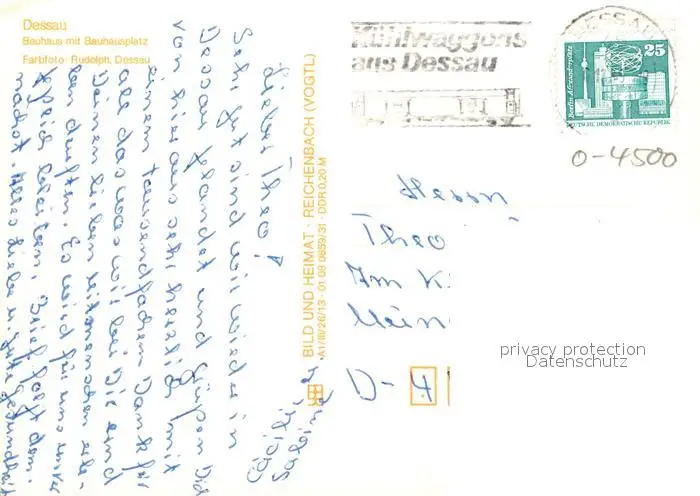 Dessau
Bauhaus mit Bauhausplatz
Farbfoto: Rudolph, Dessau
Kühlwaggons
aus Dessau
DESSAU
Berlin, Alexanderplatz
25
DEUTSCHE DEMOKRATISCHE REPUBLIK
O-4500
Lieber Theo!
Sehr gut sind wir wieder in
Dessau gelandet und grüßen Dich
von hier aus sehr herzlich mit
einem tausendfachen Dank für
all das was wir bei Dir und
Deinen lieben
ben durften. Es wird für uns unver-
geßlich bleiben. Brief folgt dem-
nächst. Alles Liebe u. gute Gesundheit
Cäcilie u.
Sabine
BILD UND HEIMAT · REICHENBACH (VOGTL)
A1/III/26/13 · 01 08 0859/31 · DDR 0,20 M
Herrn
Theo
Im K
D-4
privacy protection
Datenschutz